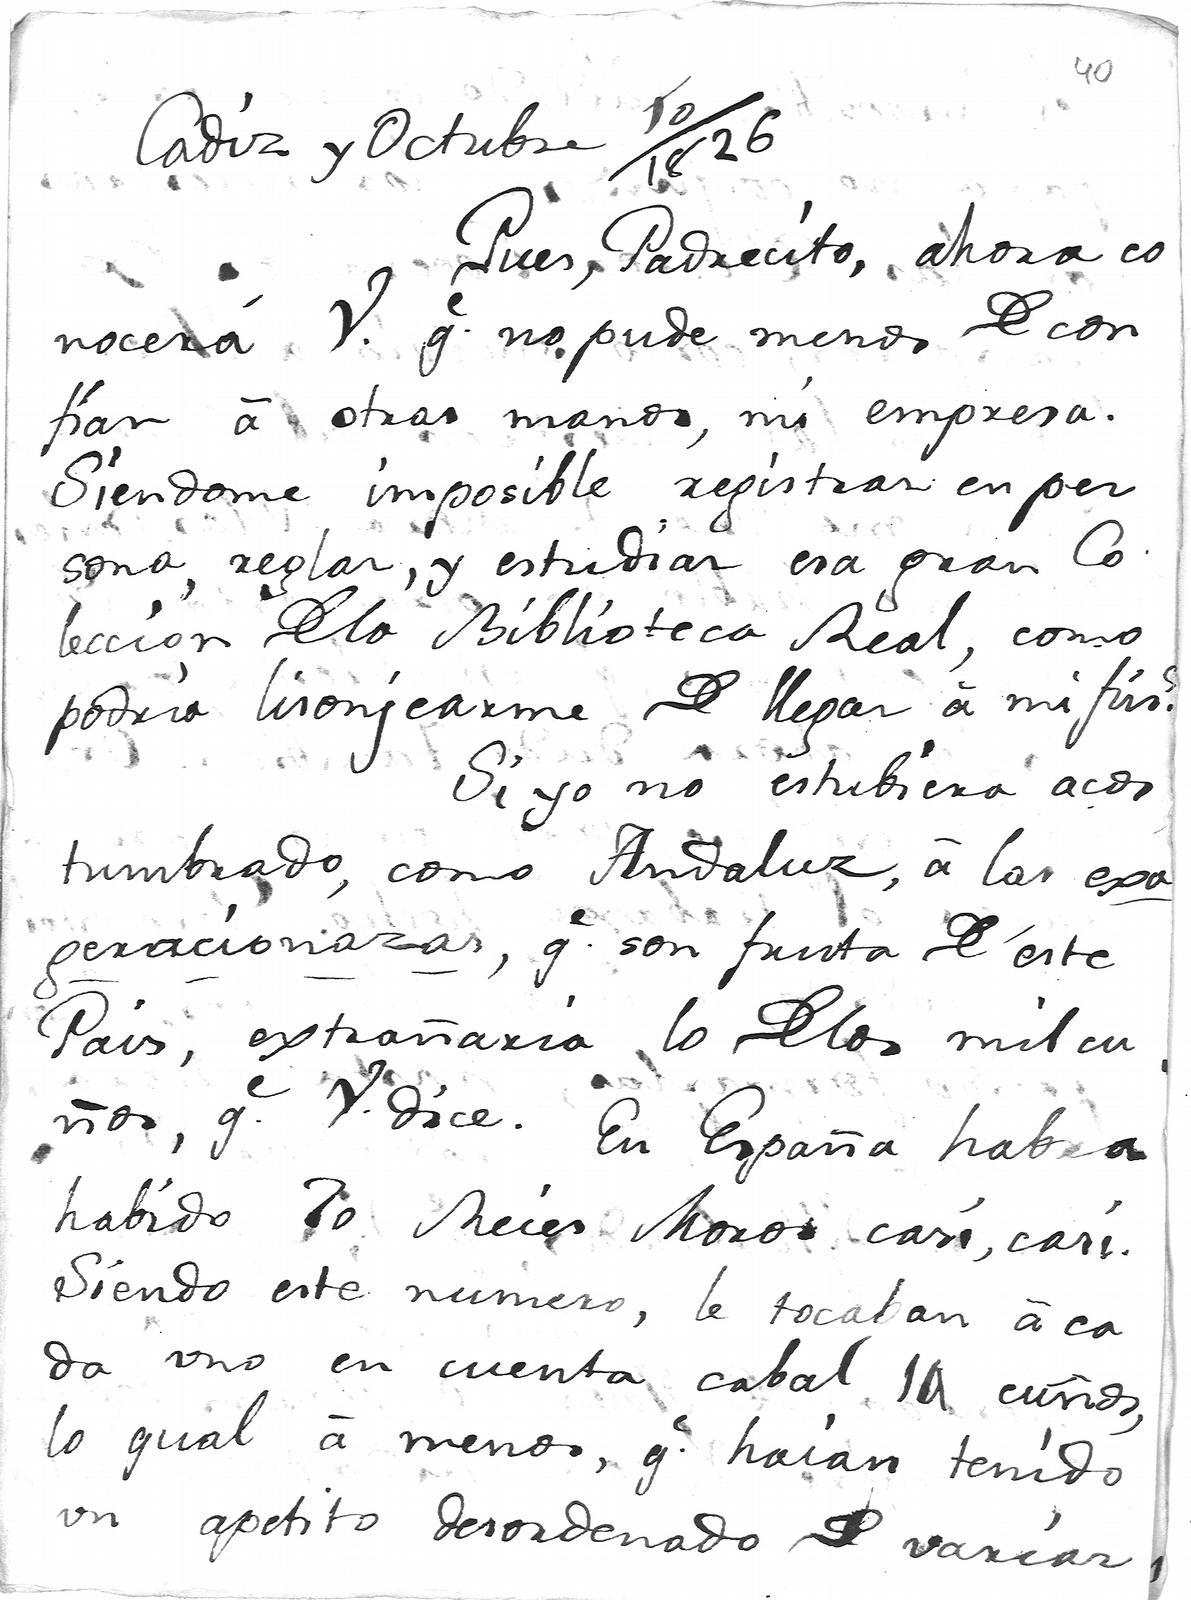 40
Cadiz y Octubre 10/1826
Pues, Padrecito, ahora co
nocerá V. qe. no pude menos De con
fiar â otras manos, mi empresa.
Siendome imposible registrar en per
sona, reglar, y estudiar esa gran Co
leccion Dela Biblioteca Real, como
podria lisonjearme De llegar â mi fin?
Si yo no estubiera acos
tumbrado, como Andaluz, â las exa
geracionazas, qe. son fruta De este
Pais, extrañaria lo Delos mil cu
ños, qe. V. dice. En España habra
habido 70 Reies Moros casi, casi.
Siendo este numero, le tocaban â ca
da uno en cuenta cabal 14 cuños,
lo qual â menos, qe. haian tenido
un apetito desordenado De variar,